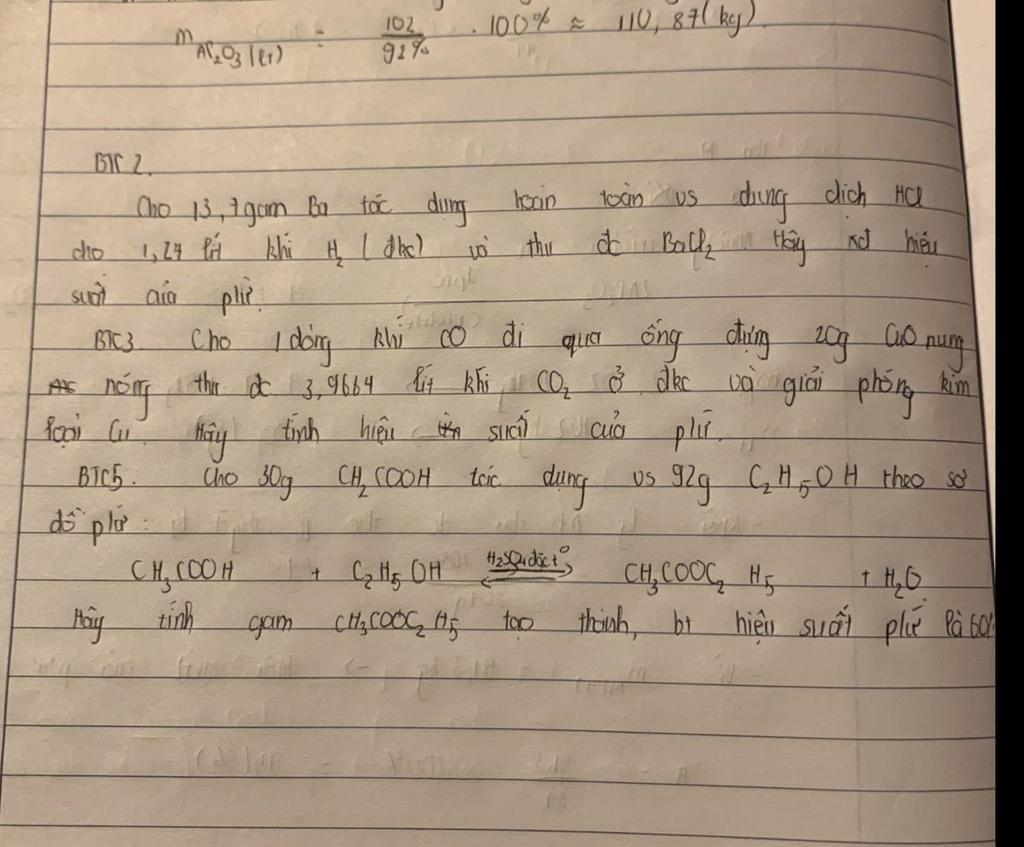 m Al₂O₃ (lt) = 102/92% . 100% ≈ 110,87(kg).
BTC 2.
Cho 13,7gam Ba tác dụng hoàn toàn vs dung dịch HCl
cho 1,24 lít khí H₂ (đkc) và thu đc BaCl₂ Hãy xđ hiệu
suất của pứ.
BTC3. Cho 1 dòng khí CO đi qua ống đựng 20g CuO nung
nóng thu đc 3,9664 lít khí CO₂ ở đkc và giải phóng kim
loại Cu. Hãy tính hiệu suất của pứ.
BTC5. Cho 30g CH₃COOH tác dụng vs 92g C₂H₅OH theo sơ
đồ pứ:
CH₃COOH + C₂H₅OH ⇌ H₂SO₄ đặc t° CH₃COOC₂H₅ + H₂O
Hãy tính gam CH₃COOC₂H₅ tạo thành, bt hiệu suất pứ là 60%